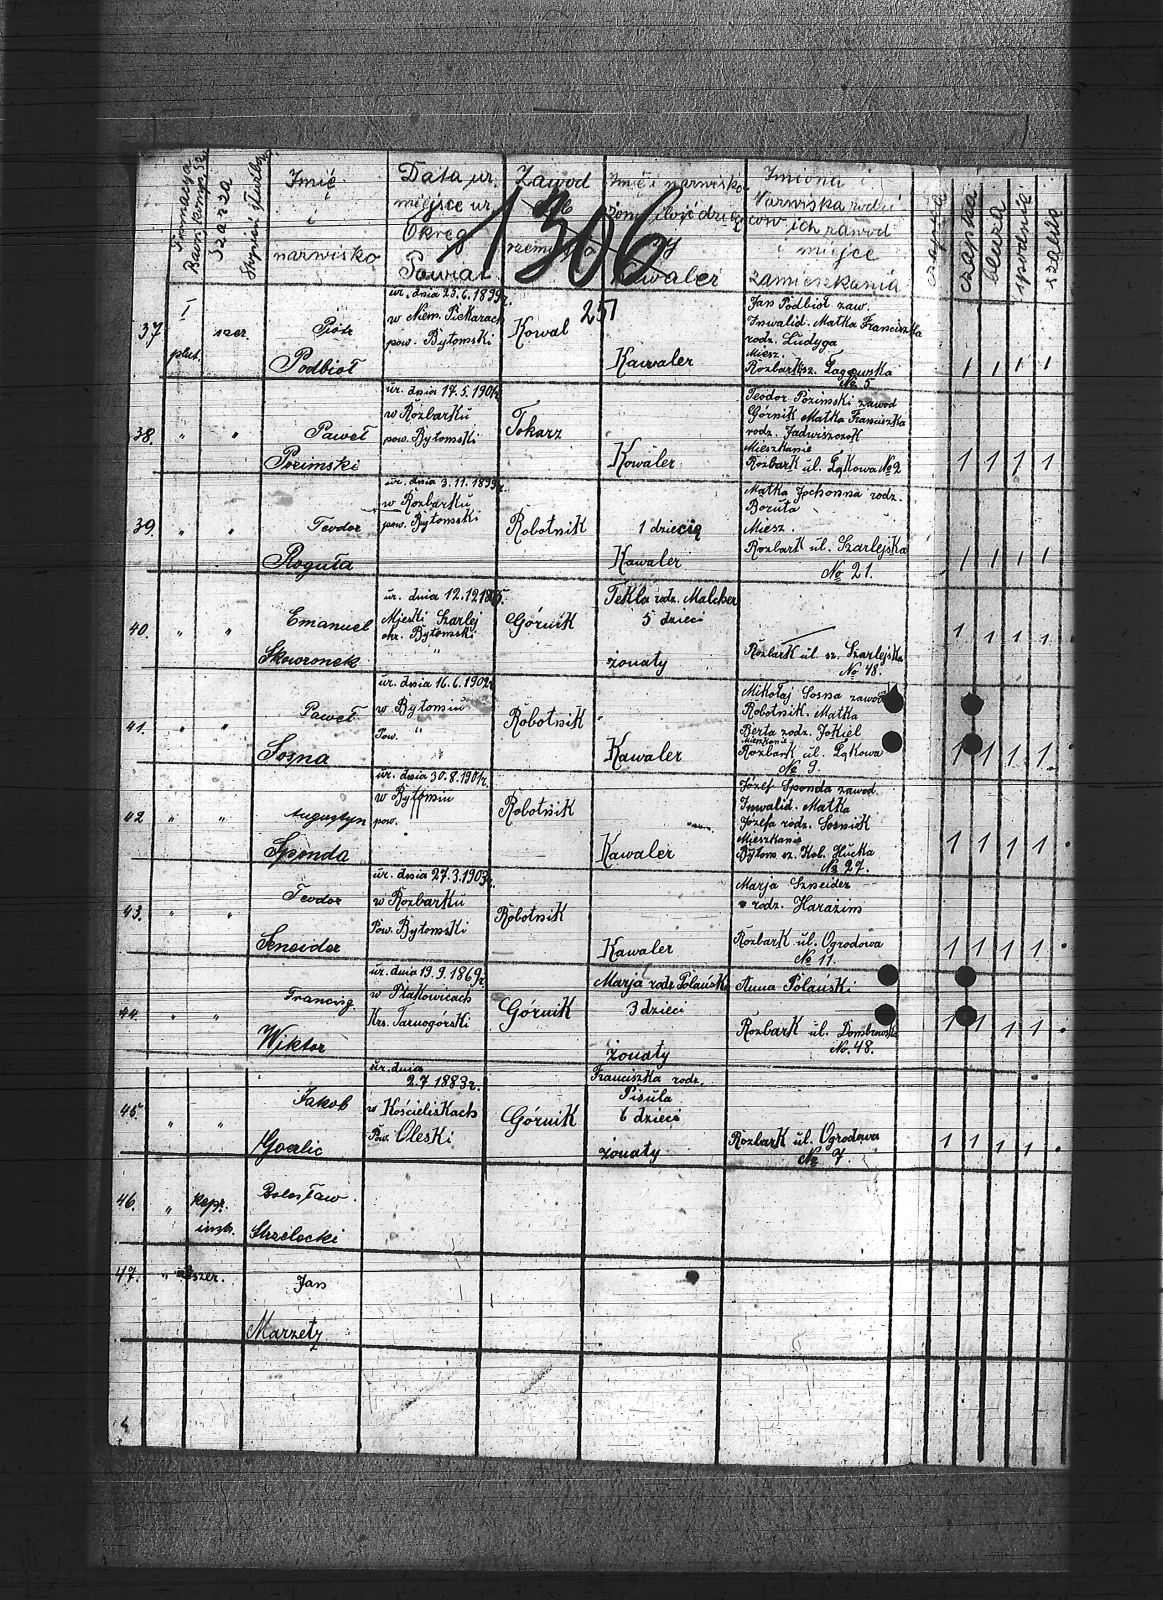 Formacya
Baon. komp.
Szarza
Stopień służbow.
Imię
i
narwisko
Data ur.
miejsce ur.
Okręg
Powiat
Zawód
rzemiosło
Imię i narwisko
żony ilość dzieci
Kawaler
Imiona i
Narwiska rodzi
ców ich zawód
i miejce
zamieszkania
czapka
bluza
spodnie
szalik
1306
251
37
I
plut.
szer.
Piotr
Podbioł
ur. dnia 25.6.1899r.
w Niem. Piekarach
pow. Bytomski
Kowal
Kawaler
Jan Podbioł zaw.
Inwalid. Matka Franciszka
rodz. Ludyga
Miesz.
Rozbark sz. Łagewska
No 5
1 1 1 1
38.
" "
Paweł
Pozimski
ur. dnia 17.5.1901r.
w Rozbarku
pow. Bytomski
Tokarz
Kowaler
Teodor Pozimski zawod
Górnik Matka Franciszka
rodz. Jadwiszczok
Mieszkanie
Rozbark ul. Łąkowa No 2
1 1 1 1
39.
" "
Teodor
Roguła
ur. dnia 3.11.1899r.
w Rozbarku
pow. Bytomski
Robotnik
1 dziecię
Kawaler
Matka Jochonna rodz.
Boruta
Miesz.
Rozbark ul. Szarlejska
No 21.
1 1 1 1
40.
" "
Emanuel
Skowronek
ur. dnia 12.12.18
Miejski Szarlej
okr. Bytomski
"
Górnik
Tekla rodz. Malcher
5 dzieci
żonaty
Rozbark ul. sz. Szarlejska
No 48.
1 1 1 1
41.
" "
Paweł
Sosna
ur. dnia 16.6.1902r.
w Bytomiu
Pow. "
Robotnik
Kawaler
Mikołaj Sosna zawod
Robotnik. Matka
Berta rodz. Jokiel
Mieszkanie
Rozbark ul. Łąkowa
No 9
1 1 1 1
42
" "
Augustyn
Sponda
ur. dnia 30.8.1901r.
w Bytomiu
pow.
Robotnik
Kawaler
Józef Sponda zawod
Inwalid. Matka
Józefa rodz. Sosnick
Mieszkanie
Bytom sz. Kob. Hucka
No 27.
1 1 1 1
43.
" "
Teodor
Sneider
ur. dnia 27.3.1903r.
w Rozbarku
Pow. Bytomski
Robotnik
Kawaler
Marja Szneider
rodz. Harazim
Rozbark ul. Ogrodowa
No 11.
1 1 1 1
44.
" "
Franciszg.
Wiktor
ur. dnia 19.9.1869r.
w Ptakowicach
Krs. Tarnogórski
Górnik
Marja rodz. Polański
3 dzieci
żonaty
Anna Polański
Rozbark ul. Dombrowska
No. 48.
1 1 1 1
45.
" "
Jakob
Goerlic
ur. dnia
2.7.1883r.
w Kościeliskach
Pow. Oleski
Górnik
Franciszka rodz.
Pisula
6 dzieci
żonaty
Rozbark ul. Ogrodowa
No 7.
1 1 1 1
46.
"
Kapr.
instr.
Bolesław
Strzelocki
47.
"
szer.
Jan
Marzetz